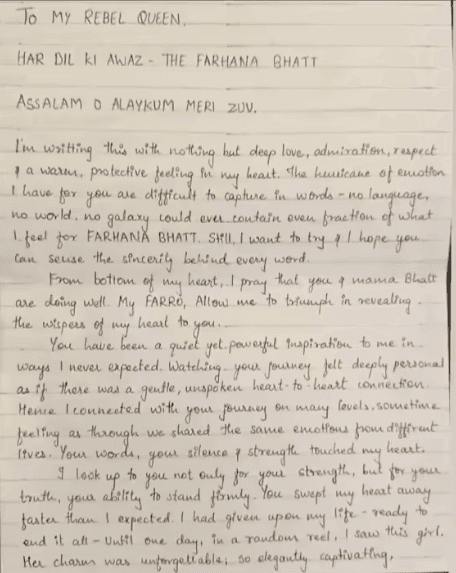 TO MY REBEL QUEEN,
HAR DIL KI AWAZ - THE FARHANA BHATT
ASSALAM O ALAYKUM MERI ZUV.
I'm writting this with nothing but deep love, admiration, respect
& a warm, protective feeling in my heart. The huricane of emotion
I have for you are difficult to capture in words - no language,
no world, no galaxy could ever contain even fraction of what
I feel for FARHANA BHATT. Still, I want to try & I hope you
can sense the sincerity behind every word.
From bottom of my heart, I pray that you & mama Bhatt
are doing well. My FARRO, Allow me to triumph in revealing
the wispers of my heart to you...
You have been a quiet yet powerful inspiration to me in
ways I never expected. Watching your journey felt deeply personal
as if there was a gentle, unspoken heart-to-heart connection.
Hence I connected with your journey on many levels, sometime
feeling as through we shared the same emotions from different
lives. Your words, your silence & strength touched my heart.
I look up to you not only for your strength, but for your
truth, your ability to stand firmly. You swept my heart away
faster than I expected. I had given upon my life - ready to
end it all - Until one day, in a random reel, I saw this girl.
Her charm was unforgettable; so elegantly captivating,